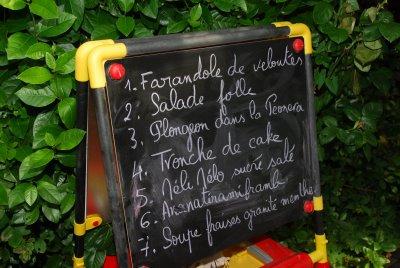 1. Farandole de veloutés
2. Salade folle
3. Plongeon dans la
4. Tronche de cake
5. Méli Mélo sucré salé
6.
7. Soupe fraises granité menthe